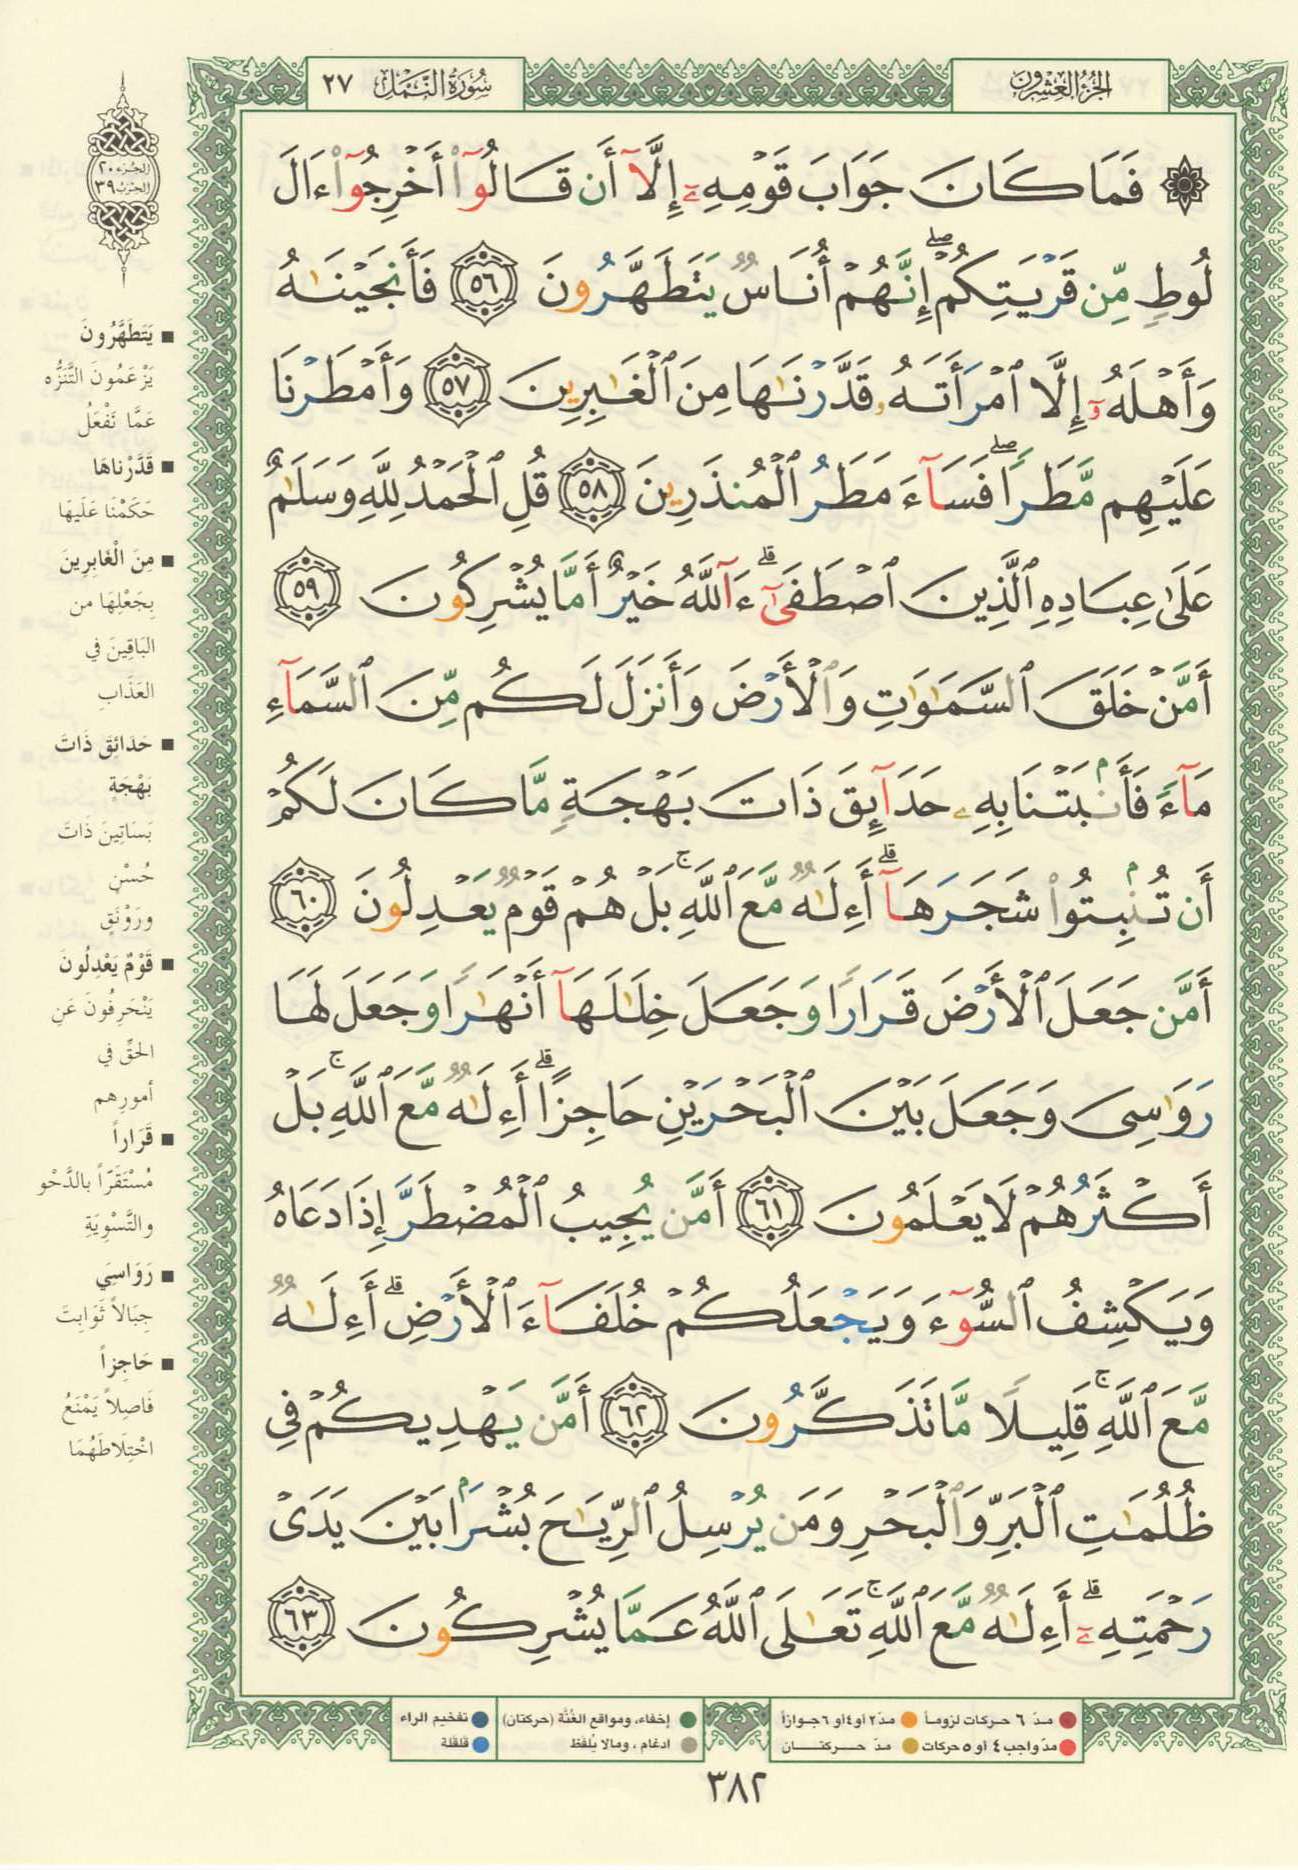 الجزء العشرون
سورة النمل ٢٧
۞ فَمَا كَانَ جَوَابَ قَوْمِهِۦٓ إِلَّآ أَن قَالُوٓا۟ أَخْرِجُوٓا۟ ءَالَ
لُوطٍ مِّن قَرْيَتِكُمْ ۖ إِنَّهُمْ أُنَاسٌ يَتَطَهَّرُونَ ٥٦ فَأَنجَيْنَـٰهُ
وَأَهْلَهُۥٓ إِلَّا ٱمْرَأَتَهُۥ قَدَّرْنَـٰهَا مِنَ ٱلْغَـٰبِرِينَ ٥٧ وَأَمْطَرْنَا
عَلَيْهِم مَّطَرًا ۖ فَسَآءَ مَطَرُ ٱلْمُنذَرِينَ ٥٨ قُلِ ٱلْحَمْدُ لِلَّهِ وَسَلَـٰمٌ
عَلَىٰ عِبَادِهِ ٱلَّذِينَ ٱصْطَفَىٰٓ ۗ ءَآللَّهُ خَيْرٌ أَمَّا يُشْرِكُونَ ٥٩
أَمَّنْ خَلَقَ ٱلسَّمَـٰوَٰتِ وَٱلْأَرْضَ وَأَنزَلَ لَكُم مِّنَ ٱلسَّمَآءِ
مَآءً فَأَنۢبَتْنَا بِهِۦ حَدَآئِقَ ذَاتَ بَهْجَةٍ مَّا كَانَ لَكُمْ
أَن تُنۢبِتُوا۟ شَجَرَهَآ ۗ أَءِلَـٰهٌ مَّعَ ٱللَّهِ ۚ بَلْ هُمْ قَوْمٌ يَعْدِلُونَ ٦٠
أَمَّن جَعَلَ ٱلْأَرْضَ قَرَارًا وَجَعَلَ خِلَـٰلَهَآ أَنْهَـٰرًا وَجَعَلَ لَهَا
رَوَٰسِىَ وَجَعَلَ بَيْنَ ٱلْبَحْرَيْنِ حَاجِزًا ۗ أَءِلَـٰهٌ مَّعَ ٱللَّهِ ۚ بَلْ
أَكْثَرُهُمْ لَا يَعْلَمُونَ ٦١ أَمَّن يُجِيبُ ٱلْمُضْطَرَّ إِذَا دَعَاهُ
وَيَكْشِفُ ٱلسُّوٓءَ وَيَجْعَلُكُمْ خُلَفَآءَ ٱلْأَرْضِ ۗ أَءِلَـٰهٌ
مَّعَ ٱللَّهِ ۚ قَلِيلًا مَّا تَذَكَّرُونَ ٦٢ أَمَّن يَهْدِيكُمْ فِى
ظُلُمَـٰتِ ٱلْبَرِّ وَٱلْبَحْرِ وَمَن يُرْسِلُ ٱلرِّيَـٰحَ بُشْرًۢا بَيْنَ يَدَىْ
رَحْمَتِهِۦٓ ۗ أَءِلَـٰهٌ مَّعَ ٱللَّهِ ۚ تَعَـٰلَى ٱللَّهُ عَمَّا يُشْرِكُونَ ٦٣
الجزء ٢٠
الحزب ٣٩
■ يَتَطَهَّرُونَ
يَزْعَمُونَ التَّنَزُّه
عَمَّا نَفْعَلُ
■ قَدَّرْناهَا
حَكَمْنَا عَلَيهَا
■ مِنَ الْغَابِرِينَ
بِجَعْلِهَا من
البَاقِينَ في
العَذَاب
■ حَدَائِقَ ذَاتَ
بَهْجَةٍ
بَسَاتِينَ ذَاتَ
حُسْنٍ
ورَوْنَقٍ
■ قَوْمٌ يَعْدِلُونَ
يَنْحَرِفُونَ عَنِ
الحَقِّ في
أمورِهم
■ قَرَاراً
مُسْتَقَرّاً بالدَّحْوِ
والتَّسْوِيَةِ
■ رَوَاسِيَ
جِبَالاً ثَوَابِتَ
■ حَاجِزاً
فَاصِلاً يَمْنَعُ
اخْتِلَاطَهُمَا
مدّ ٦ حركات لزوماً
مدّ ٢ أو ٤ أو ٦ جوازاً
إخفاء، ومواقع الغُنَّة (حركتان)
تفخيم الراء
مدّ واجب ٤ أو ٥ حركات
مدّ حركتان
ادغام، ومالا يُلفظ
قلقلة
٣٨٢